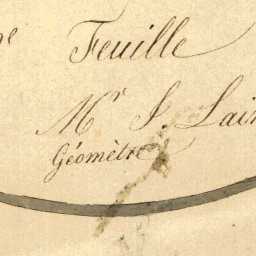 Feuille
Mr S. Lain
Géomètre